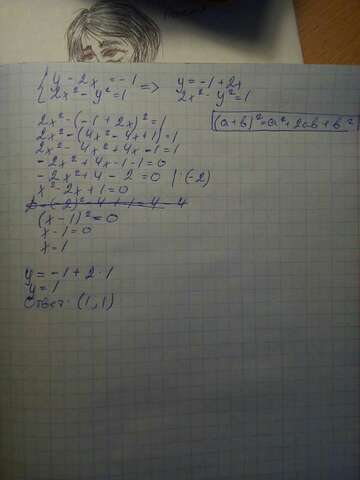 { y - 2x = -1 => y = -1 + 2x
{ 2x² - y² = 1 2x² - y² = 1
(a+b)² = a² + 2ab + b²
2x² - (-1 + 2x)² = 1
2x² - (4x² - 4x + 1) = 1
2x² - 4x² + 4x - 1 = 1
-2x² + 4x - 1 - 1 = 0
-2x² + 4 - 2 = 0 | (-2)
x² - 2x + 1 = 0
(x - 1)² = 0
x - 1 = 0
x = 1
y = -1 + 2 · 1
y = 1
Ответ: (1, 1)